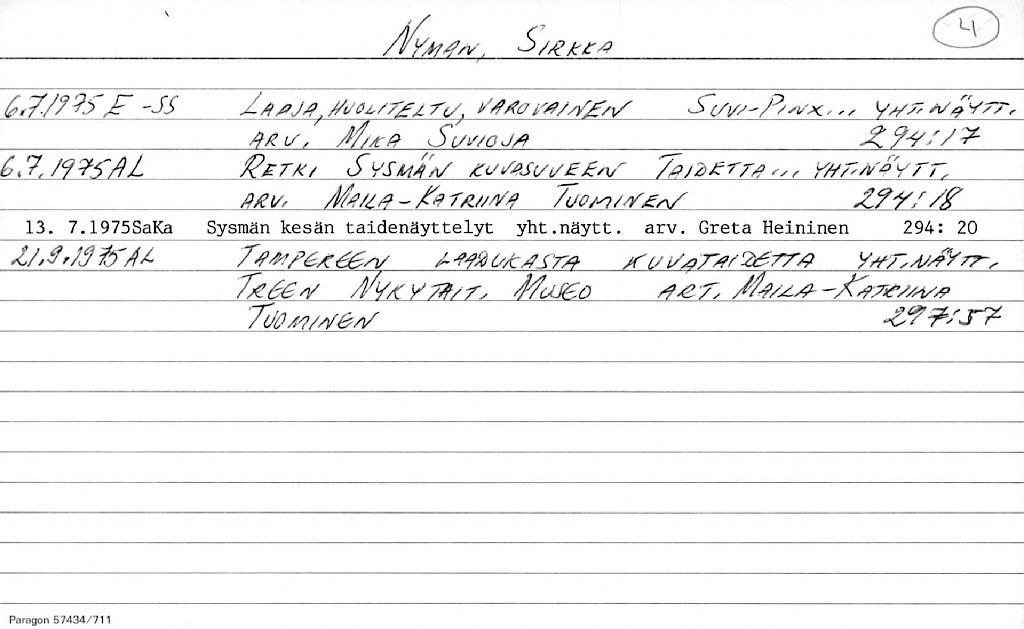 4
NYMAN, SIRKKA
6.7.1975 E-SS LAAJA, HUOLITELTU, VAROVAINEN SUVI-PINX... YHT.NÄYTT.
ARV. MIKA SUVIOJA 294:17
6.7.1975AL RETKI SYSMÄN KUVASUVEEN TAIDETTA... YHT.NÄYTT.
ARV. MAILA-KATRIINA TUOMINEN 294:18
13. 7.1975SaKa Sysmän kesän taidenäyttelyt yht.näytt. arv. Greta Heininen 294: 20
21.9.1975AL TAMPEREEN LAADUKASTA KUVATAIDETTA YHT.NÄYTT.
TREEN NYKYTAIT. MUSEO ART. MAILA-KATRIINA
TUOMINEN 297:57
Paragon 57434/711